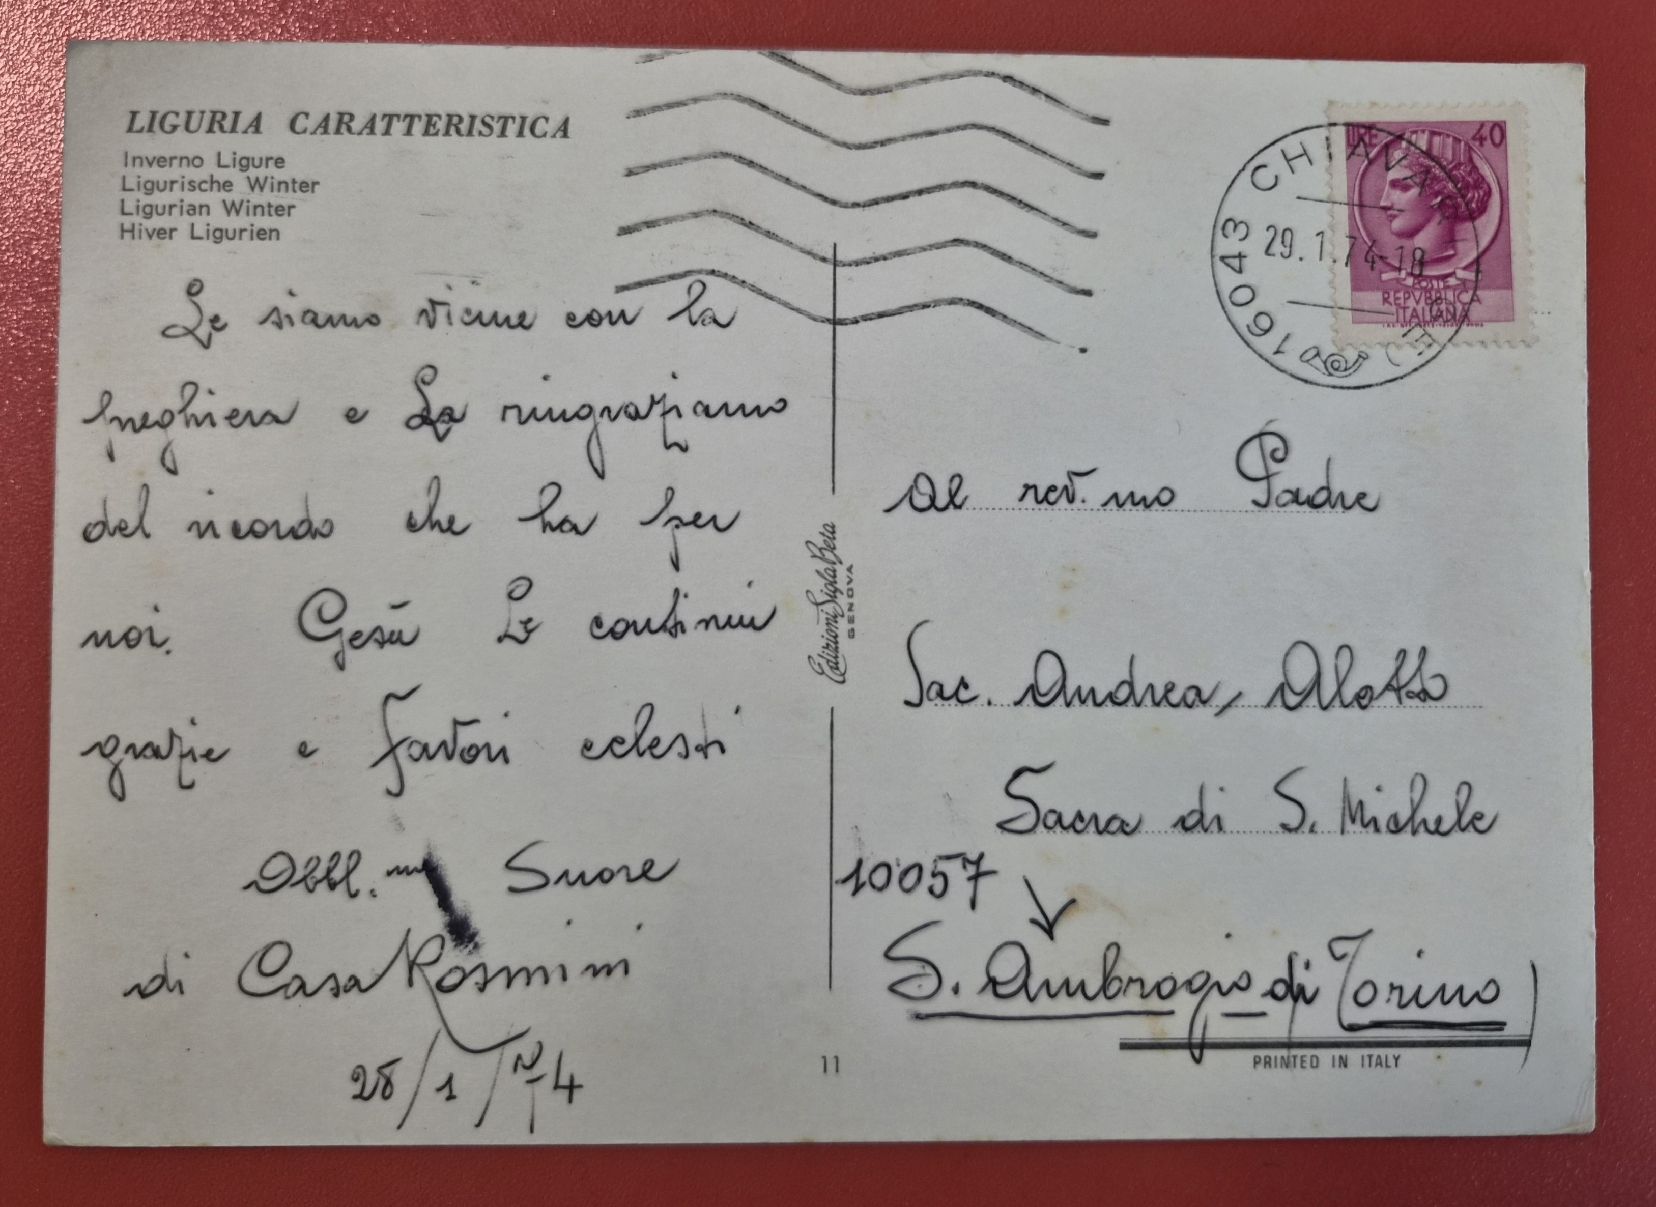 LIGURIA CARATTERISTICA
Inverno Ligure
Ligurische Winter
Ligurian Winter
Hiver Ligurien
Le siamo vicine con la
preghiera e La ringraziamo
del ricordo che ha per
noi. Gesù Le continui
grazie e favori celesti
Obbl.me Suore
di Casa Rosmini
28/1/74
Edizioni Sigla Beta
GENOVA
11
LIRE 40
POSTE
REPVBBLICA
ITALIANA
16043 CHIAVARI
29.1.74-18
Al rev.mo Padre
Sac. Andrea Alotto
Sacra di S. Michele
10057
S. Ambrogio di Torino
PRINTED IN ITALY